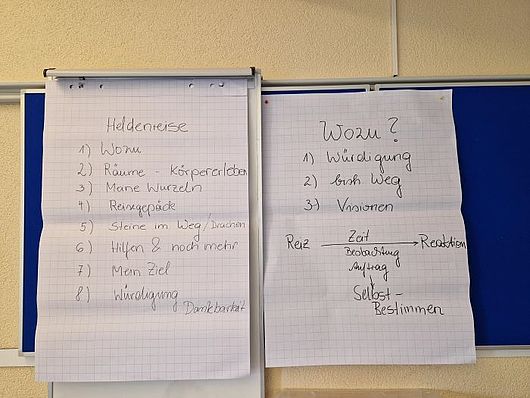 Heldenreise
1) Wozu
2) Räume - Körpererleben
3) Meine Wurzeln
4) Reisegepäck
5) Steine im Weg / Drachen
6) Hilfen & noch mehr
7) Mein Ziel
8) Würdigung
Dankbarkeit
Wozu?
1) Würdigung
2) bish. Weg
3.) Visionen
Reiz Zeit Reaktion
Beobachtung
Auftrag
Selbst-
Bestimmen